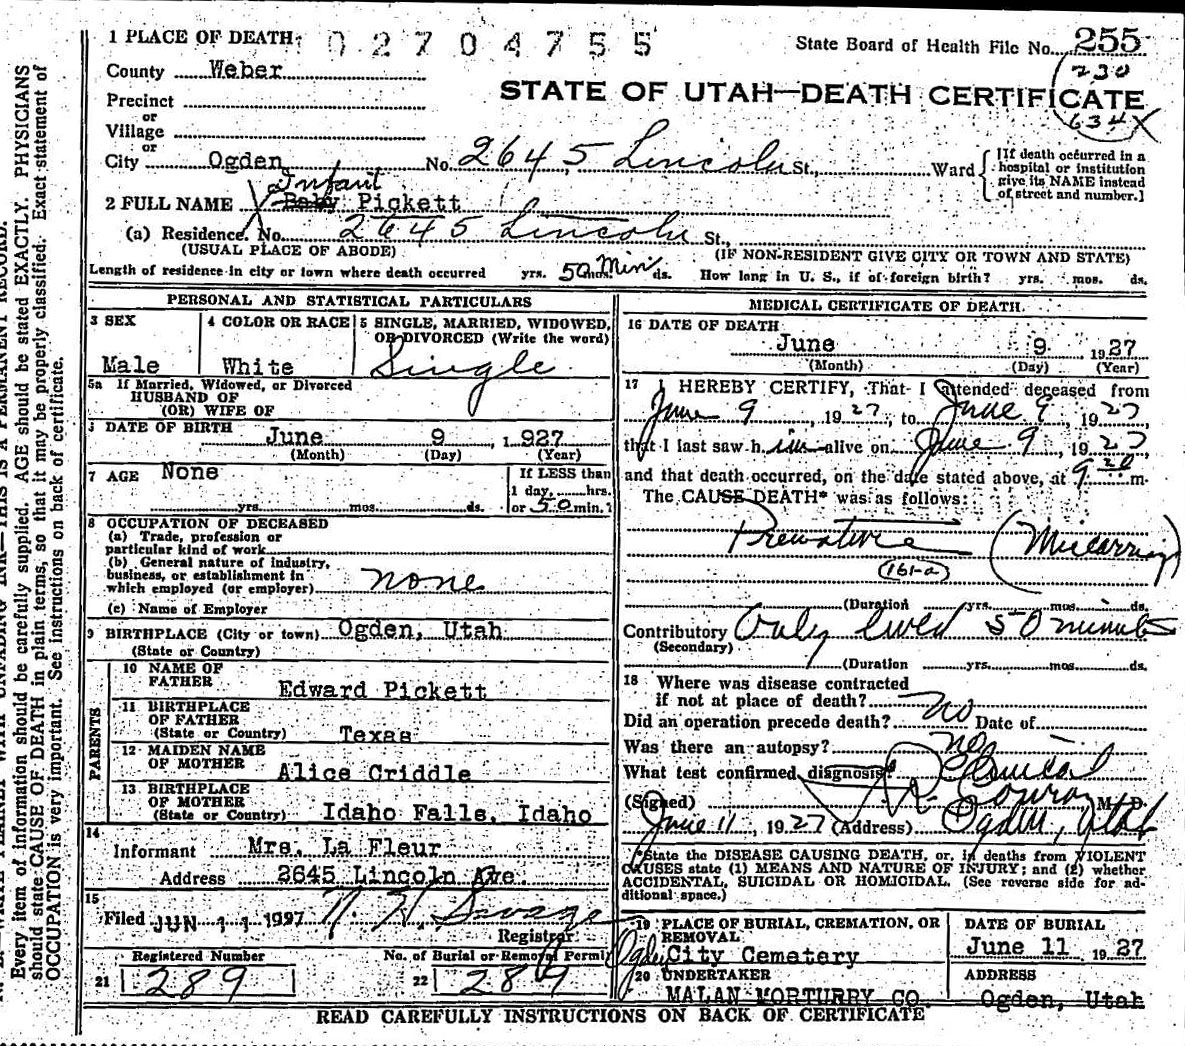 1 PLACE OF DEATH: 02704755 State Board of Health File No. 255
County Weber 230
STATE OF UTAH—DEATH CERTIFICATE
634 X
Precinct
or
Village
or
City Ogden No. 2645 Lincoln St., Ward [If death occurred in a hospital or institution give its NAME instead of street and number.]
Infant
2 FULL NAME X Baby Pickett
(a) Residence. No. 2645 Lincoln St.,
(USUAL PLACE OF ABODE) (IF NON-RESIDENT GIVE CITY OR TOWN AND STATE)
Length of residence in city or town where death occurred yrs. 50 mos. Min ds. How long in U. S., if of foreign birth? yrs. mos. ds.
PERSONAL AND STATISTICAL PARTICULARS
3 SEX
Male
4 COLOR OR RACE
White
5 SINGLE, MARRIED, WIDOWED, OR DIVORCED (Write the word)
Single
5a If Married, Widowed, or Divorced
HUSBAND OF
(OR) WIFE OF
DATE OF BIRTH
June 9, 1927
(Month) (Day) (Year)
7 AGE None
yrs. mos. ds.
If LESS than
1 day, hrs.
or 50 min.?
8 OCCUPATION OF DECEASED
(a) Trade, profession or
particular kind of work
(b) General nature of industry,
business, or establishment in
which employed (or employer) none
(c) Name of Employer
9 BIRTHPLACE (City or town) Ogden, Utah
(State or Country)
PARENTS
10 NAME OF
FATHER Edward Pickett
11 BIRTHPLACE
OF FATHER
(State or Country) Texas
12 MAIDEN NAME
OF MOTHER Alice Criddle
13 BIRTHPLACE
OF MOTHER
(State or Country) Idaho Falls, Idaho
14
Informant Mrs. La Fleur
Address 2645 Lincoln Ave.
15
Filed JUN 11 1927 Savage
Registrar
Registered Number No. of Burial or Removal Permit
21 289 22 289
MEDICAL CERTIFICATE OF DEATH
16 DATE OF DEATH
June 9 1927
(Month) (Day) (Year)
17 I HEREBY CERTIFY, That I attended deceased from
June 9, 1927, to June 9, 1927
that I last saw him alive on June 9, 1927
and that death occurred, on the date stated above, at 9 m.
The CAUSE DEATH* was as follows:
Premature (Miscarriage)
161-a
(Duration yrs. mos. ds.
Contributory Only lived 50 minutes
(Secondary)
(Duration yrs. mos. ds.
18 Where was disease contracted
if not at place of death?
Did an operation precede death? No Date of
Was there an autopsy? no
What test confirmed diagnosis? Clinical
(Signed) Conroy M. D.
June 11, 1927 (Address) Ogden, Utah
*State the DISEASE CAUSING DEATH, or, in deaths from VIOLENT
CAUSES state (1) MEANS AND NATURE OF INJURY; and (2) whether
ACCIDENTAL, SUICIDAL OR HOMICIDAL. (See reverse side for ad-
ditional space.)
19 PLACE OF BURIAL, CREMATION, OR
REMOVAL
Ogden City Cemetery
DATE OF BURIAL
June 11 1927
20 UNDERTAKER
MALAN MORTURRY CO.
ADDRESS
Ogden, Utah
READ CAREFULLY INSTRUCTIONS ON BACK OF CERTIFICATE
Every item of information should be carefully supplied. AGE should be stated EXACTLY. PHYSICIANS
should state CAUSE OF DEATH in plain terms, so that it may be properly classified. Exact statement of
OCCUPATION is very important. See instructions on back of certificate.